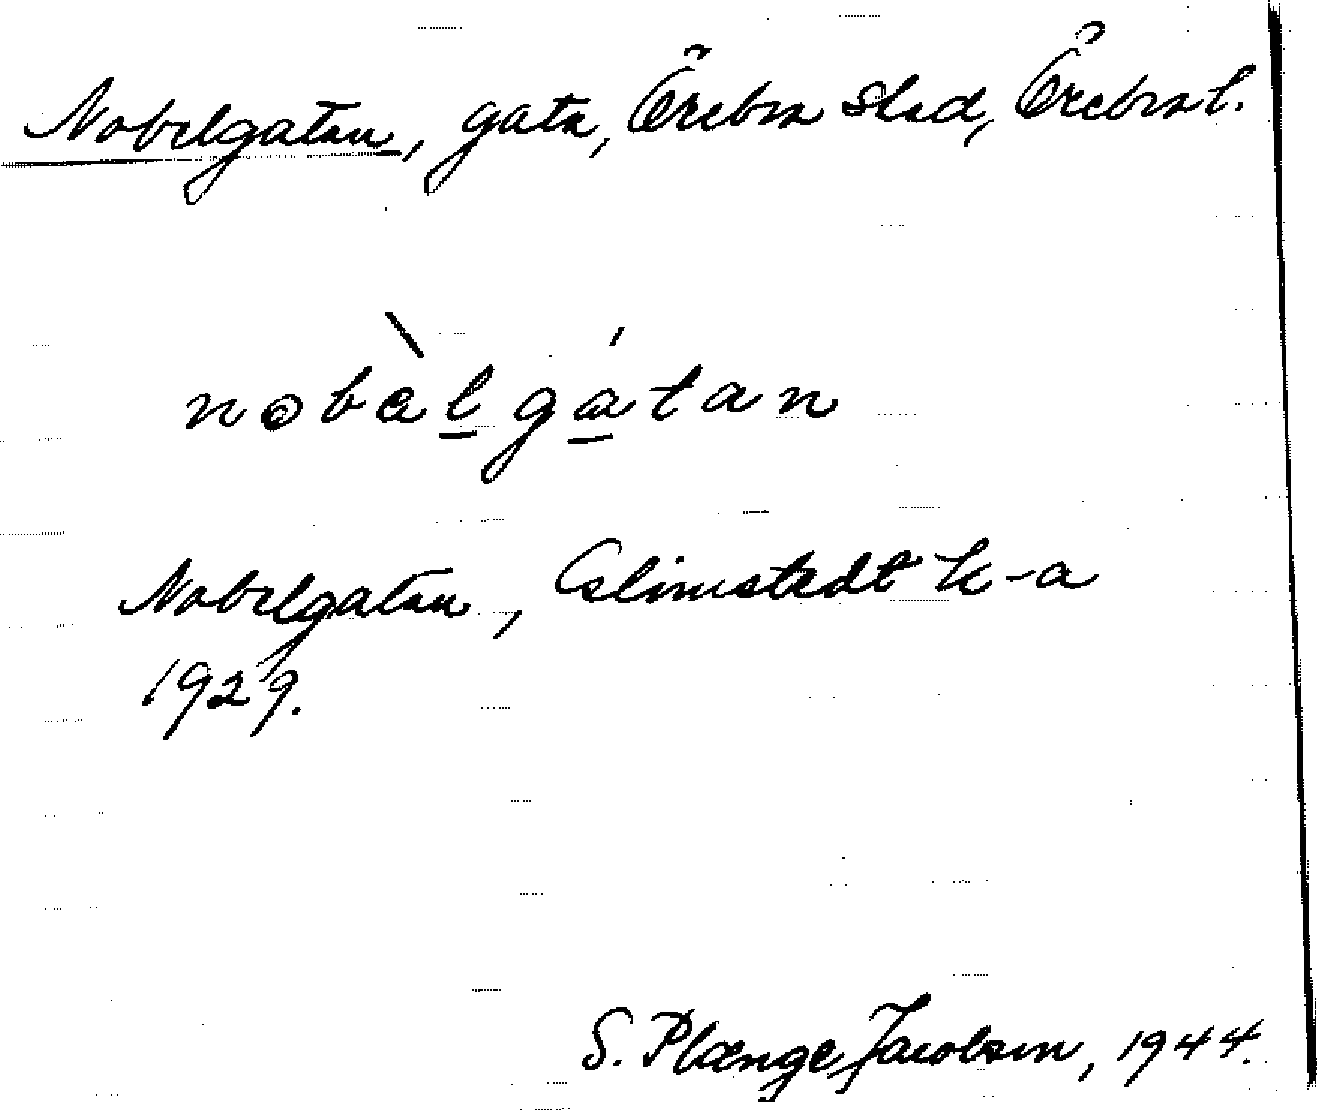 Nobelgatan, gata, Örebro stad, Örebro l.
nobàlgátan
Nobelgatan, Elimstedt k-a
1929.
S. Plænge Jacobson, 1944.